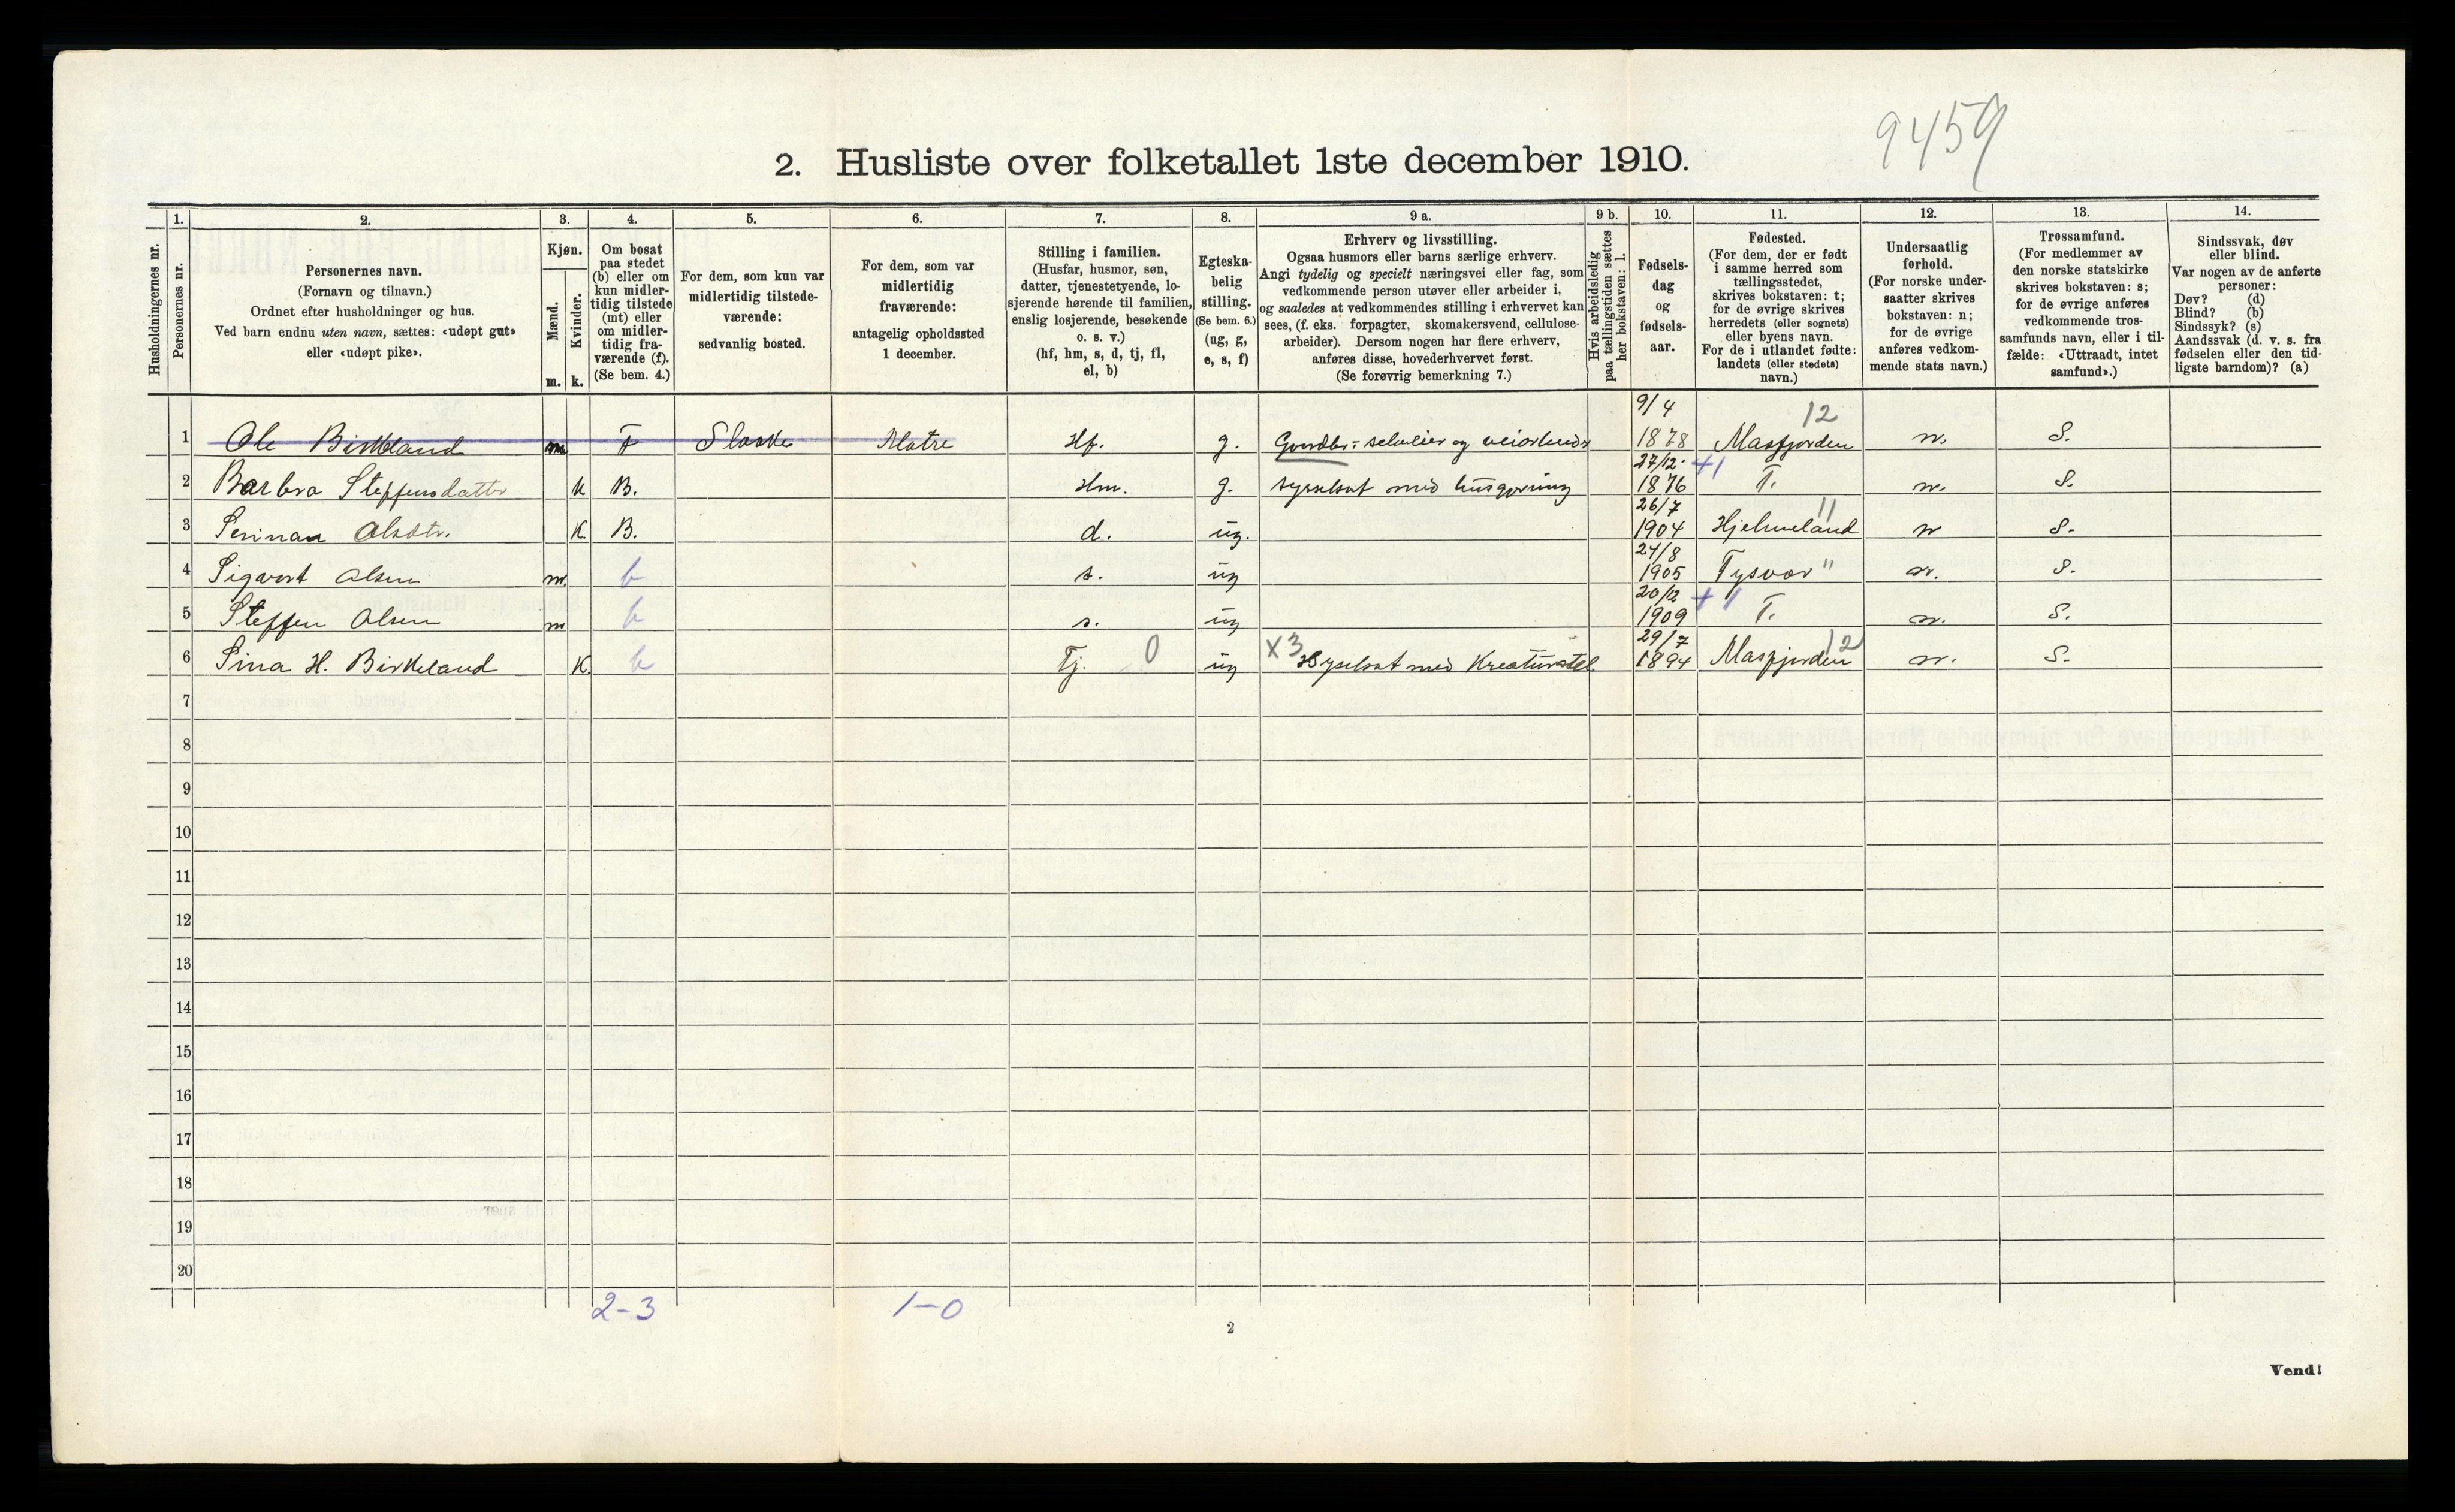 9459
2. Husliste over folketallet 1ste december 1910.
Husholdningernes nr.
1.
Personernes nr.
2.
Personernes navn.
(Fornavn og tilnavn.)
Ordnet efter husholdninger og hus.
Ved barn endnu uten navn, sættes: «udøpt gut»
eller «udøpt pike».
3.
Kjøn.
Mænd.
Kvinder.
m. k.
4.
Om bosat
paa stedet
(b) eller om
kun midler-
tidig tilstede
(mt) eller
om midler-
tidig fra-
værende (f).
(Se bem. 4.)
5.
For dem, som kun var
midlertidig tilstede-
værende:
sedvanlig bosted.
6.
For dem, som var
midlertidig
fraværende:
antagelig opholdssted
1 december.
7.
Stilling i familien.
(Husfar, husmor, søn,
datter, tjenestetyende, lo-
sjerende hørende til familien,
enslig losjerende, besøkende
o. s. v.)
(hf, hm, s, d, tj, fl,
el, b)
8.
Egteska-
belig
stilling.
(Se bem. 6.)
(ug, g,
e, s, f)
9 a.
Erhverv og livsstilling.
Ogsaa husmors eller barns særlige erhverv.
Angi tydelig og specielt næringsvei eller fag, som
vedkommende person utøver eller arbeider i,
og saaledes at vedkommendes stilling i erhvervet kan
sees, (f. eks. forpagter, skomakersvend, cellulose-
arbeider). Dersom nogen har flere erhverv,
anføres disse, hovederhvervet først.
(Se forøvrig bemerkning 7.)
9 b.
Hvis arbeidsledig
paa tællingstiden sættes
her bokstaven: l.
10.
Fødsels-
dag
og
fødsels-
aar.
11.
Fødested.
(For dem, der er født
i samme herred som
tællingsstedet,
skrives bokstaven: t;
for de øvrige skrives
herredets (eller sognets)
eller byens navn.
For de i utlandet fødte:
landets (eller stedets)
navn.)
12.
Undersaatlig
forhold.
(For norske under-
saatter skrives
bokstaven: n;
for de øvrige
anføres vedkom-
mende stats navn.)
13.
Trossamfund.
(For medlemmer av
den norske statskirke
skrives bokstaven: s;
for de øvrige anføres
vedkommende tros-
samfunds navn, eller i til-
fælde: «Uttraadt, intet
samfund».)
14.
Sindssvak, døv
eller blind.
Var nogen av de anførte
personer:
Døv? (d)
Blind? (b)
Sindssyk? (s)
Aandssvak (d. v. s. fra
fødselen eller den tid-
ligste barndom)? (a)
1 Ole Birkeland m F Matre Hf. g. Gaardbr: selveier og veiarbeider 9/4 1878 12 Masfjorden n. S.
2 Barbra Steffensdatter k B. Hm. g. syselsat med husgjerning 27/12 1876 +1 T. n. S.
3 Olsdtr. K. B. d. ug. 26/7 1904 11 Hjelmeland n S.
4 Sigvart Olsen m. b s. ug 24/8 1905 Tysvær " n. S.
5 Steffen Olsen m b s. ug 20/12 1909 +1 T. n. S.
6 Sina H. Birkeland K. b Tj. 0 ug X3 syselsat med Kreaturstel 29/7 1894 12 Masfjorden n. S.
7
8
9
10
11
12
13
14
15
16
17
18
19
20
2-3 1-0
2
Vend!